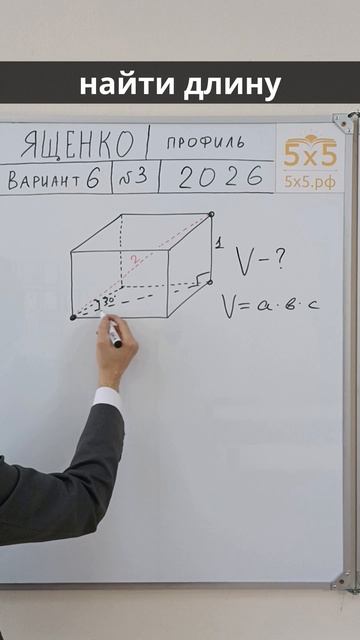 найти длину
ЯЩЕНКО ПРОФИЛЬ
ВАРИАНТ 6 №3 2026
5х5
5х5.рф
2
1
30°
V - ?
V = а · в · с